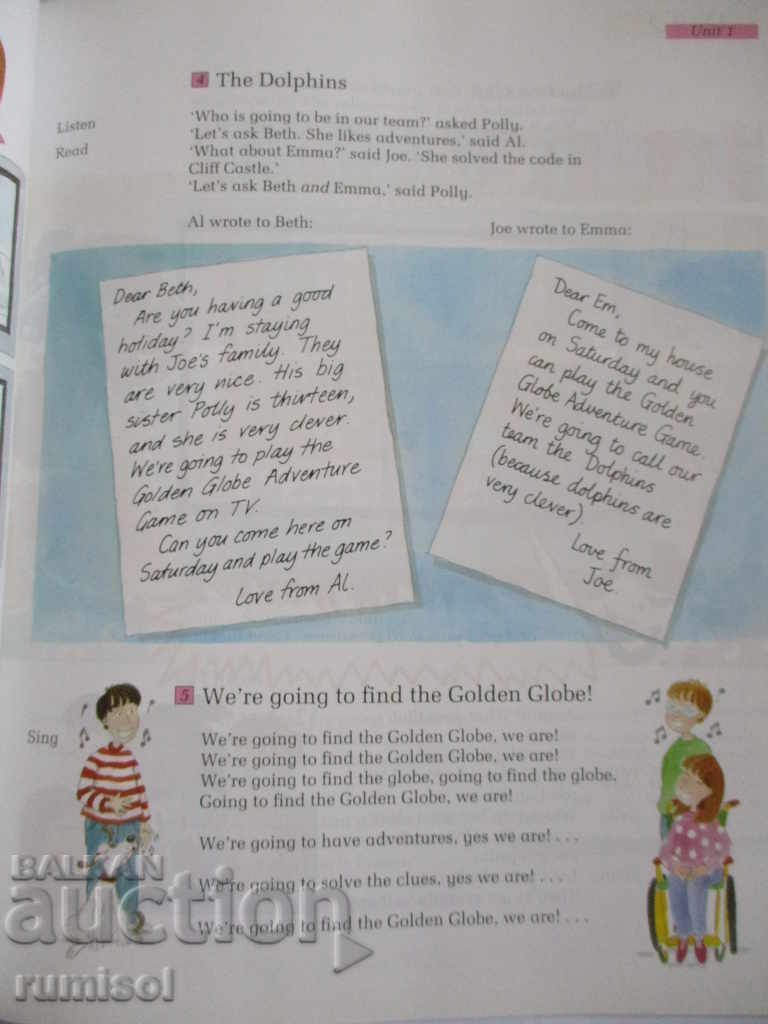 Unit 1
4 The Dolphins
Listen
Read
'Who is going to be in our team?' asked Polly.
'Let's ask Beth. She likes adventures,' said Al.
'What about Emma?' said Joe. 'She solved the code in
Cliff Castle.'
'Let's ask Beth and Emma,' said Polly.
Al wrote to Beth:
Joe wrote to Emma:
Dear Beth,
Are you having a good
holiday? I'm staying
with Joe's family. They
are very nice. His big
sister Polly is thirteen,
and she is very clever.
We're going to play the
Golden Globe Adventure
Game on TV.
Can you come here on
Saturday and play the game?
Love from Al.
Dear Em,
Come to my house
on Saturday and you
can play the Golden
Globe Adventure Game.
We're going to call our
team the Dolphins
(because dolphins are
very clever).
Love from
Joe.
5 We're going to find the Golden Globe!
Sing
We're going to find the Golden Globe, we are!
We're going to find the Golden Globe, we are!
We're going to find the globe, going to find the globe,
Going to find the Golden Globe, we are!
We're going to have adventures, yes we are! . . .
We're going to solve the clues, yes we are! . . .
We're going to find the Golden Globe, we are! . . .
BALKAN
auction
rumisol